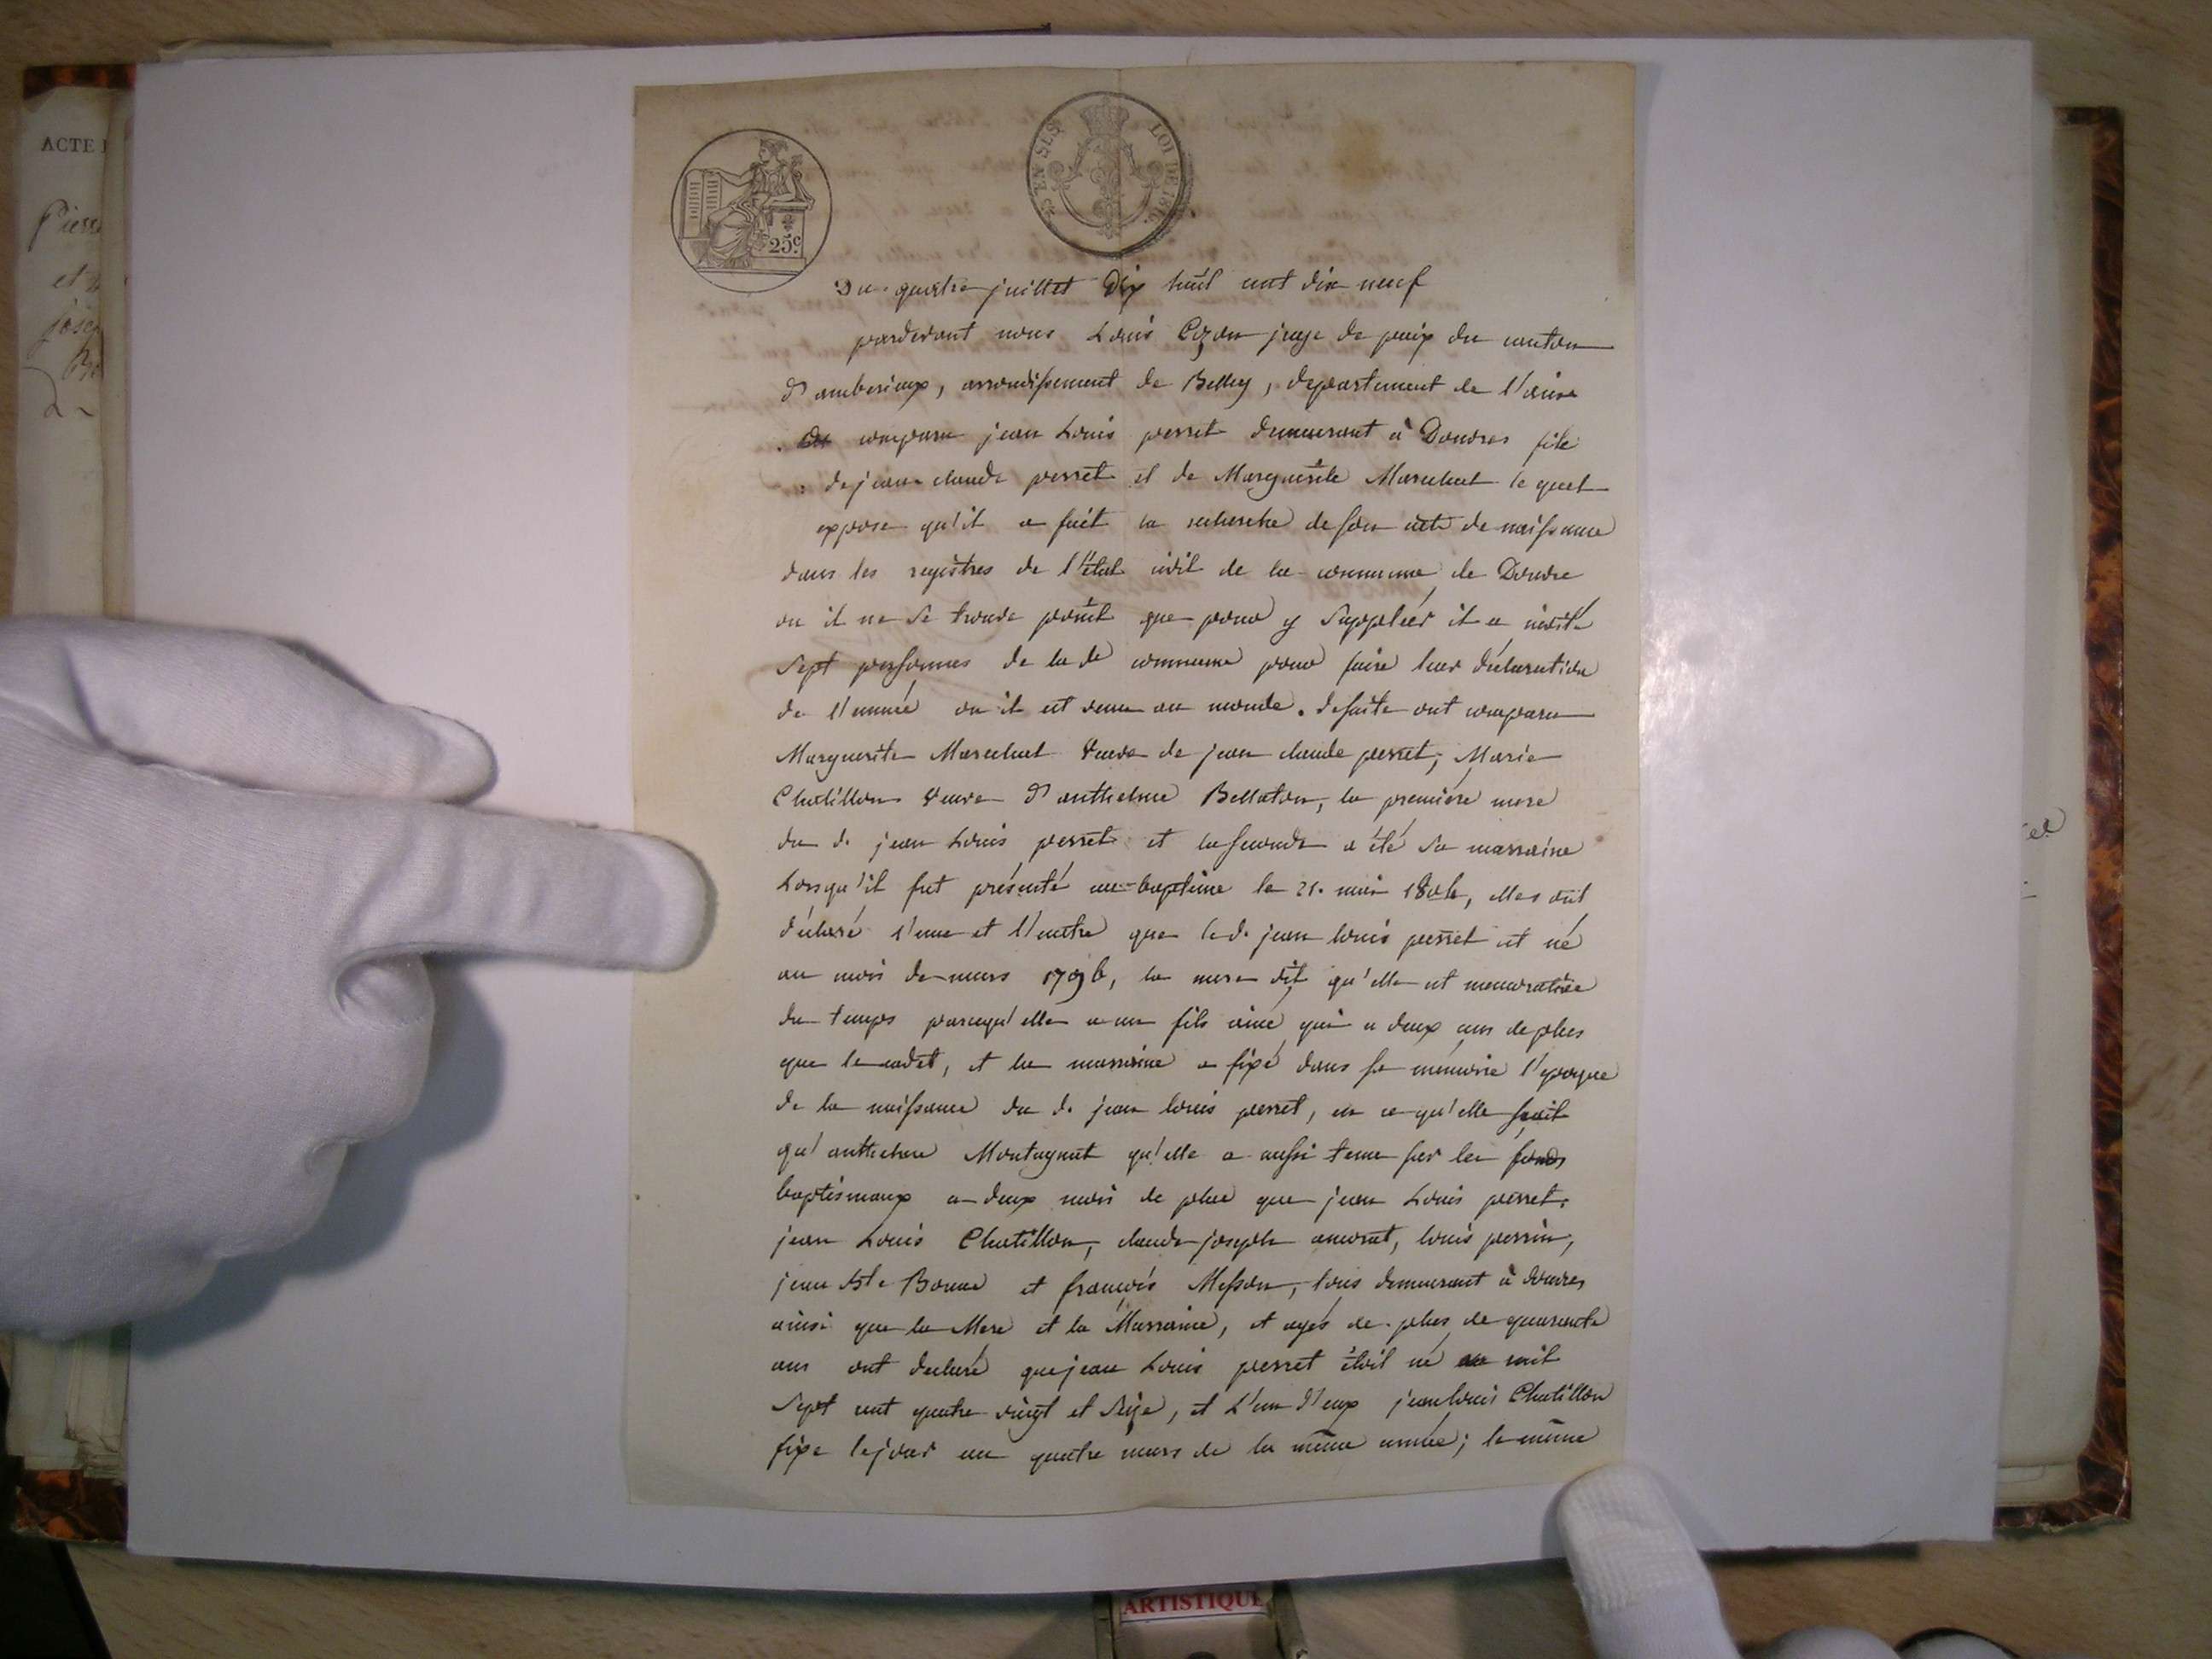 ACTE
Pierre
et
josep
25c.
EN SUS
LOI DE 1816.
Du quatre juillet dix huit cent dix neuf
pardevant nous Louis Cozon juge de paix du canton
d'amberieux, arrondissement de Belley, departement de l'ain
comparu jean Louis perret demeurant à Douvres fils
de jean claude perret et de Marguerite Marechal le quel
expose qu'il a fait la recherche de son acte de naissance
dans les registres de l'état civil de la commune de Douvre
ou il ne se trouve point que pour y Suppléer il a invité
Sept personnes de la de commune pour faire leur déclaration
de l'année ou il est venu au monde. desuite ont comparu
Marguerite Marechal Veuve de jean claude perret; Marie
Chatillon Veuve d'anthelme Bellaton, la premiére mere
du d. jean Louis perret et la seconde a été sa marraine
Lorsqu'il fut présenté au baptême le 21. mai, elles ont
déclaré l'une et l'autre que led. jean louis perret est né
au mois de mars 1796, la mere dit qu'elle est memorative
du temps parcequ'elle a un fils ainé qui a deux ans de plus
que le cadet, et la marraine a fixé dans sa mémoire l'epoque
de la naissance du d. jean louis perret, en ce qu'elle sçait
qu'anthelme Montagnat qu'elle a aussi tenu sur les fonds
baptismaux a deux mois de plus que jean Louis perret.
jean Louis Chatillon, claude joseph, louis perrin,
jean Bte Bonne et françois Messon, tous demeurant à douvres
ainsi que la Mere et la Marraine, et agés de plus de quarante
ans ont declaré que jean Louis perret étoit né mil
Sept cent quatre vingt et Seize, et L'un d'eux jean louis Chatillon
fixe le jour au quatre mars de la même année; le même
ARTISTIQUE